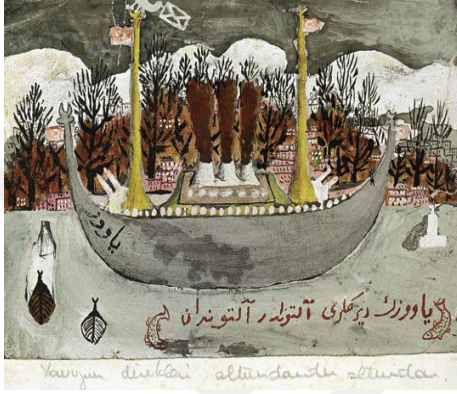 ياووز
ياووزك ديركلرى آلتوندر آلتوندان
Yavuzun direkleri altundandır altundan.